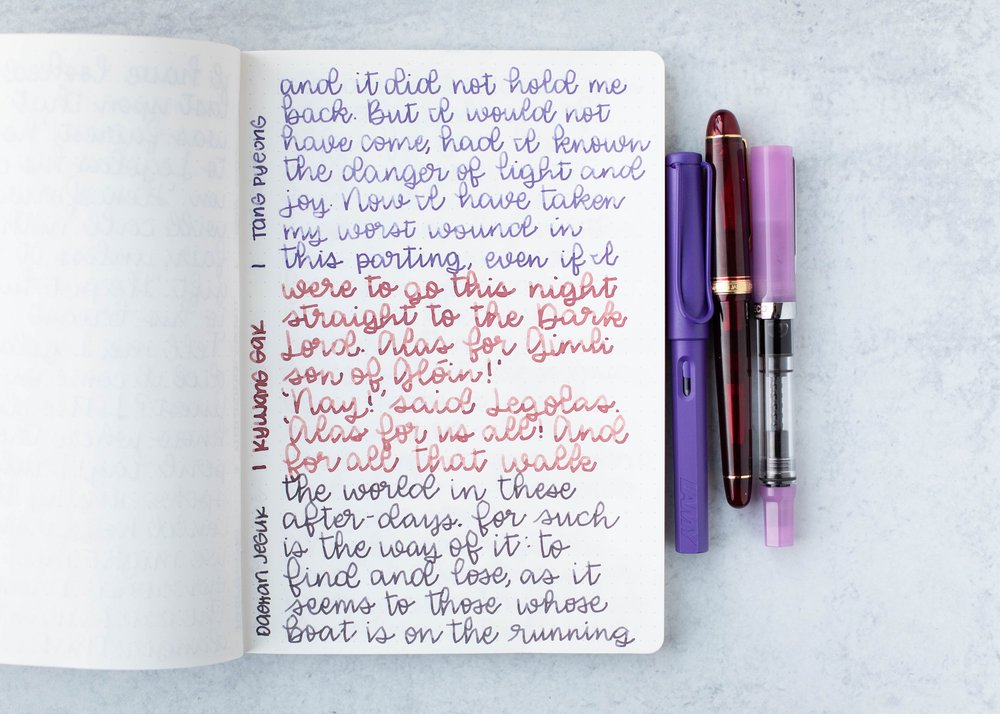 and it did not hold me
back. But I would not
have come, had I known
the danger of light and
joy. Now I have taken
my worst wound in
this parting, even if I
were to go this night
straight to the Dark
Lord. Alas for Gimli
son of Glóin!'
'Nay!' said Legolas.
'Alas for us all! And
for all that walk
the world in these
after-days. For such
is the way of it: to
find and lose, as it
seems to those whose
boat is on the running
DAEHAN JEGUK | KYUJANG GAK | TANG PYEONG
LAMY